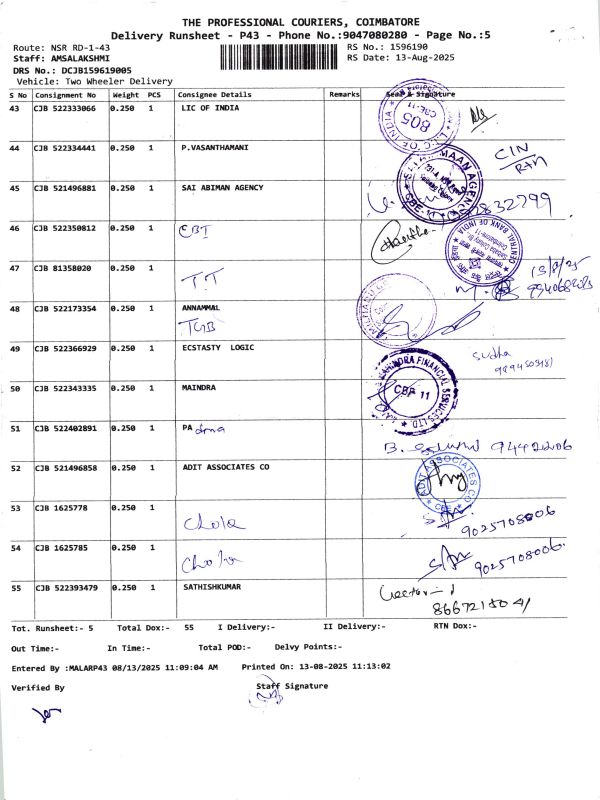 THE PROFESSIONAL COURIERS, COIMBATORE
Delivery Runsheet - P43 - Phone No.:9047080280 - Page No.:5
Route: NSR RD-1-43 RS No.: 1596190
Staff: AMSALAKSHMI RS Date: 13-Aug-2025
DRS No.: DCJB159619005
Vehicle: Two Wheeler Delivery
S No Consignment No Weight PCS Consignee Details Remarks Seal & Signature
43 CJB 522333066 0.250 1 LIC OF INDIA 805
44 CJB 522334441 0.250 1 P.VASANTHAMANI CIN
RTN
45 CJB 521496881 0.250 1 SAI ABIMAN AGENCY
46 CJB 522350812 0.250 1 CBI
CENTRAL BANK OF INDIA
47 CJB 81358020 0.250 1 TT 13/8/25
48 CJB 522173354 0.250 1 ANNAMMAL
TGB
49 CJB 522366929 0.250 1 ECSTASTY LOGIC Sudha
50 CJB 522343335 0.250 1 MAINDRA
MAHINDRA FINANCIAL SERVICES LTD.
CBE 11
51 CJB 522402891 0.250 1 PA dma
52 CJB 521496858 0.250 1 ADIT ASSOCIATES CO
ADIT ASSOCIATES CO
53 CJB 1625778 0.250 1 Chola 9025708006
54 CJB 1625785 0.250 1 Chola 9025708006.
55 CJB 522393479 0.250 1 SATHISHKUMAR
Tot. Runsheet:- 5 Total Dox:- 55 I Delivery:- II Delivery:- RTN Dox:-
Out Time:- In Time:- Total POD:- Delvy Points:-
Entered By :MALARP43 08/13/2025 11:09:04 AM Printed On: 13-08-2025 11:13:02
Verified By Staff Signature